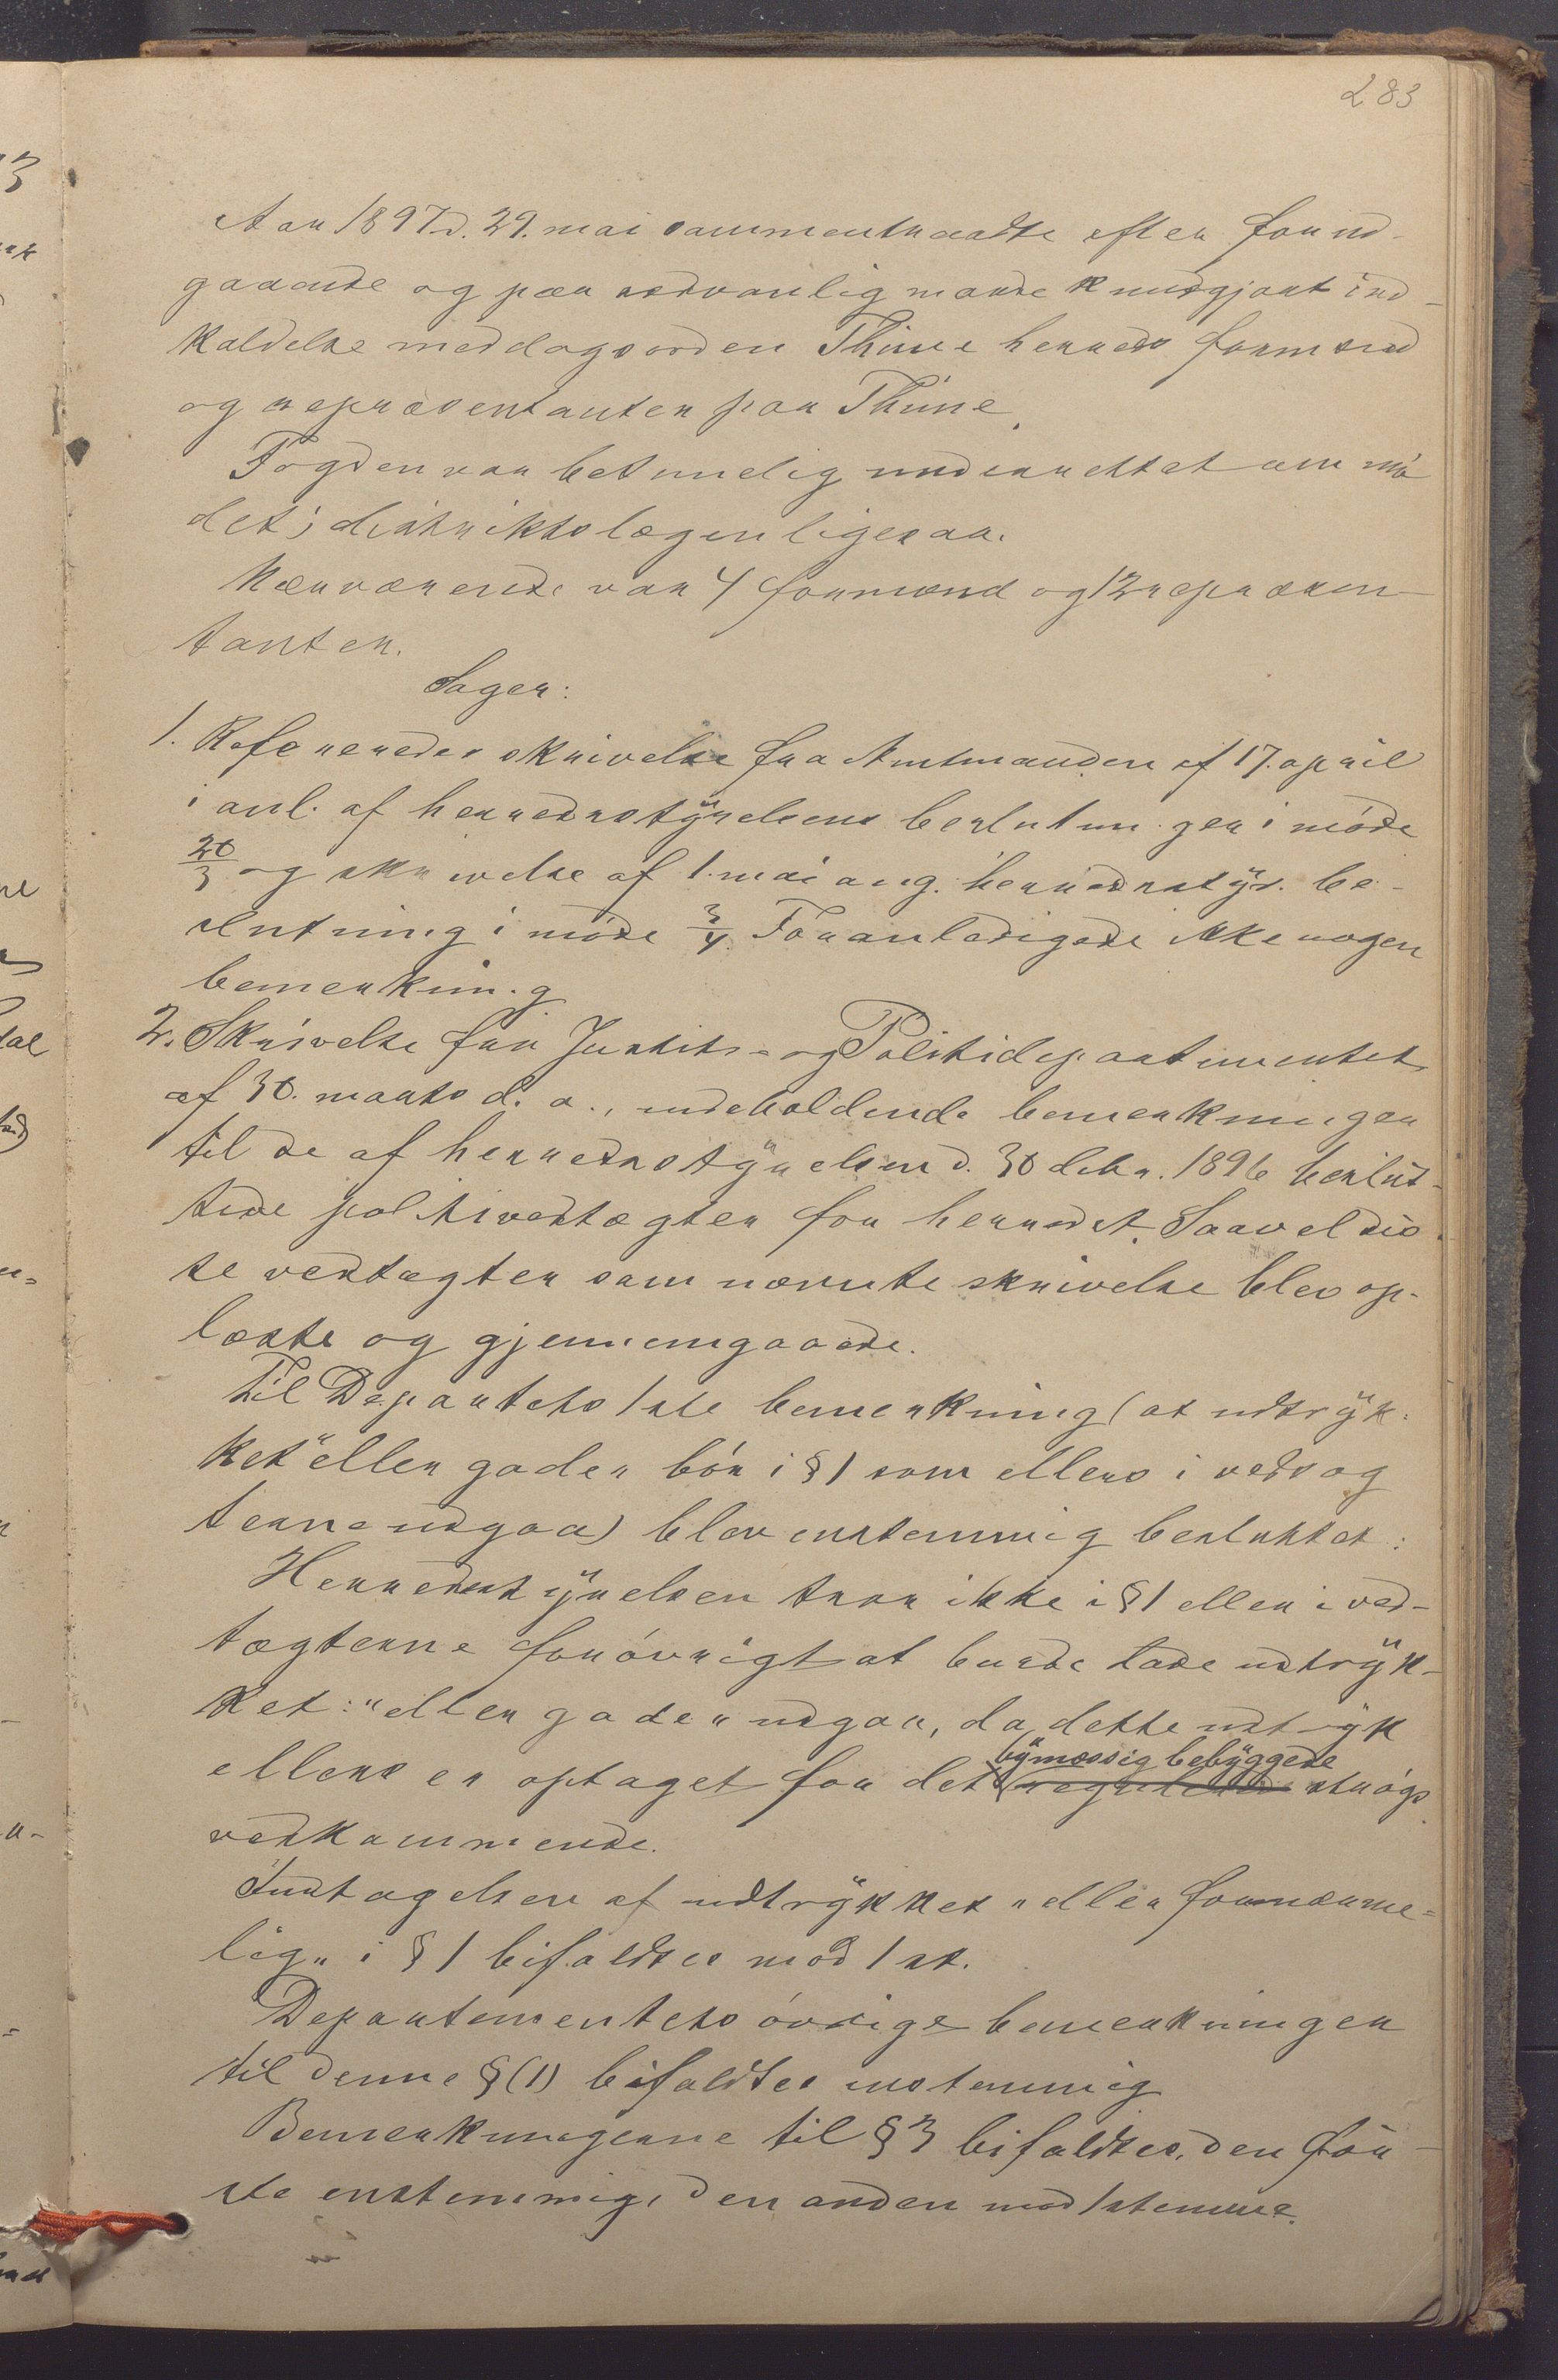 283
Aar 1897 d. 29. mai sammentraadte efter forud-
gaaende og paa sedvanlig maade kundgjort ind-
kaldelse med dagsorden Thime herreds formænd
og repræsentanter paa Thime.
Fogden var betimelig underrettet om mö-
det; distriktslægen ligesaa.
Nærværende var 4 formænd og 12 repræsen-
tanter.
Sager:
1. Refereredes skrivelse fra Amtmanden af 17. april
i anl. af herredsstÿrelsens beslutninger i möde
20/3 og skrivelse af 1. mai ang. herredsstÿr. be-
slutning i möde 3/4. Foranledigede ikke nogen
bemerkning.
2. Skrivelse fra Justits- og Politidepartementet
af 30. marts d. a., indeholdende bemerkninger
til de af herredsstÿrelsen d. 30 debr. 1896 beslut-
tede politivedtægter for herredet. Saavel dis-
se vedtægter som nævnte skrivelse blev op-
læste og gjennemgaaede.
Til Departets 1ste bemerkning (at udtrÿk-
ket "eller gade" bör i § 1 som ellers i vedtæg
terne udgaa) blev enstemmig besluttet:
Herredsstÿrelsen tror ikke i § 1 eller i ved-
tægterne forövrigt at burde lade udtrÿk-
ket: "eller gade" udgaa, da dette udtrÿk
bÿmæssig bebÿggede
ellers er optaget for det regulerede strögs
vedkommende.
Indtagelsen af udtrÿkket "eller fornærme-
lig" i § 1 bifaldtes mod 1 st.
Departementets övrige bemerkninger
til denne § (1) bifaldtes enstemmig
Bemerkningerne til § 3 bifaldtes, den för-
ste enstemmig, den anden mod 1 stemme.